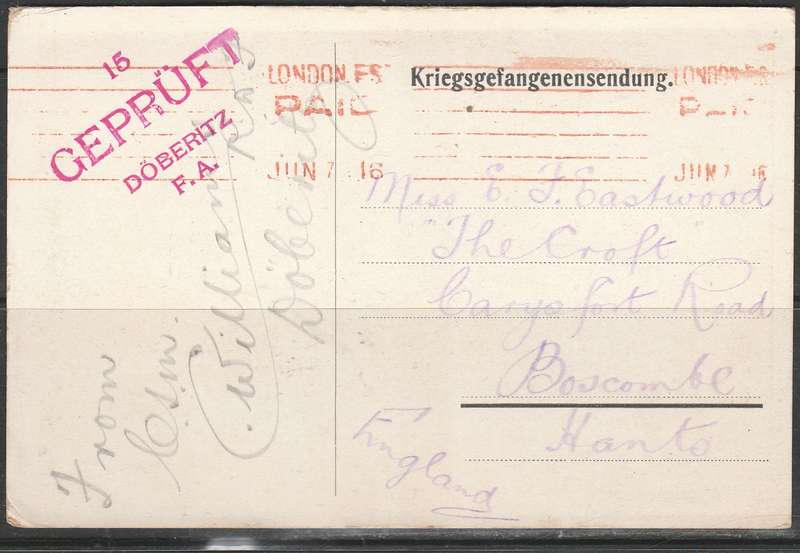 15
GEPRÜFT
DÖBERITZ
F.A.
LONDON.F.S
PAID
JUN 7 16
Kriegsgefangenensendung.
LONDON.F.S
PAID
JUN 7 16
Miss E. F. Eastwood
"The Croft
Carysfort Road
Boscombe
Hants
England
From
William
Döberitz